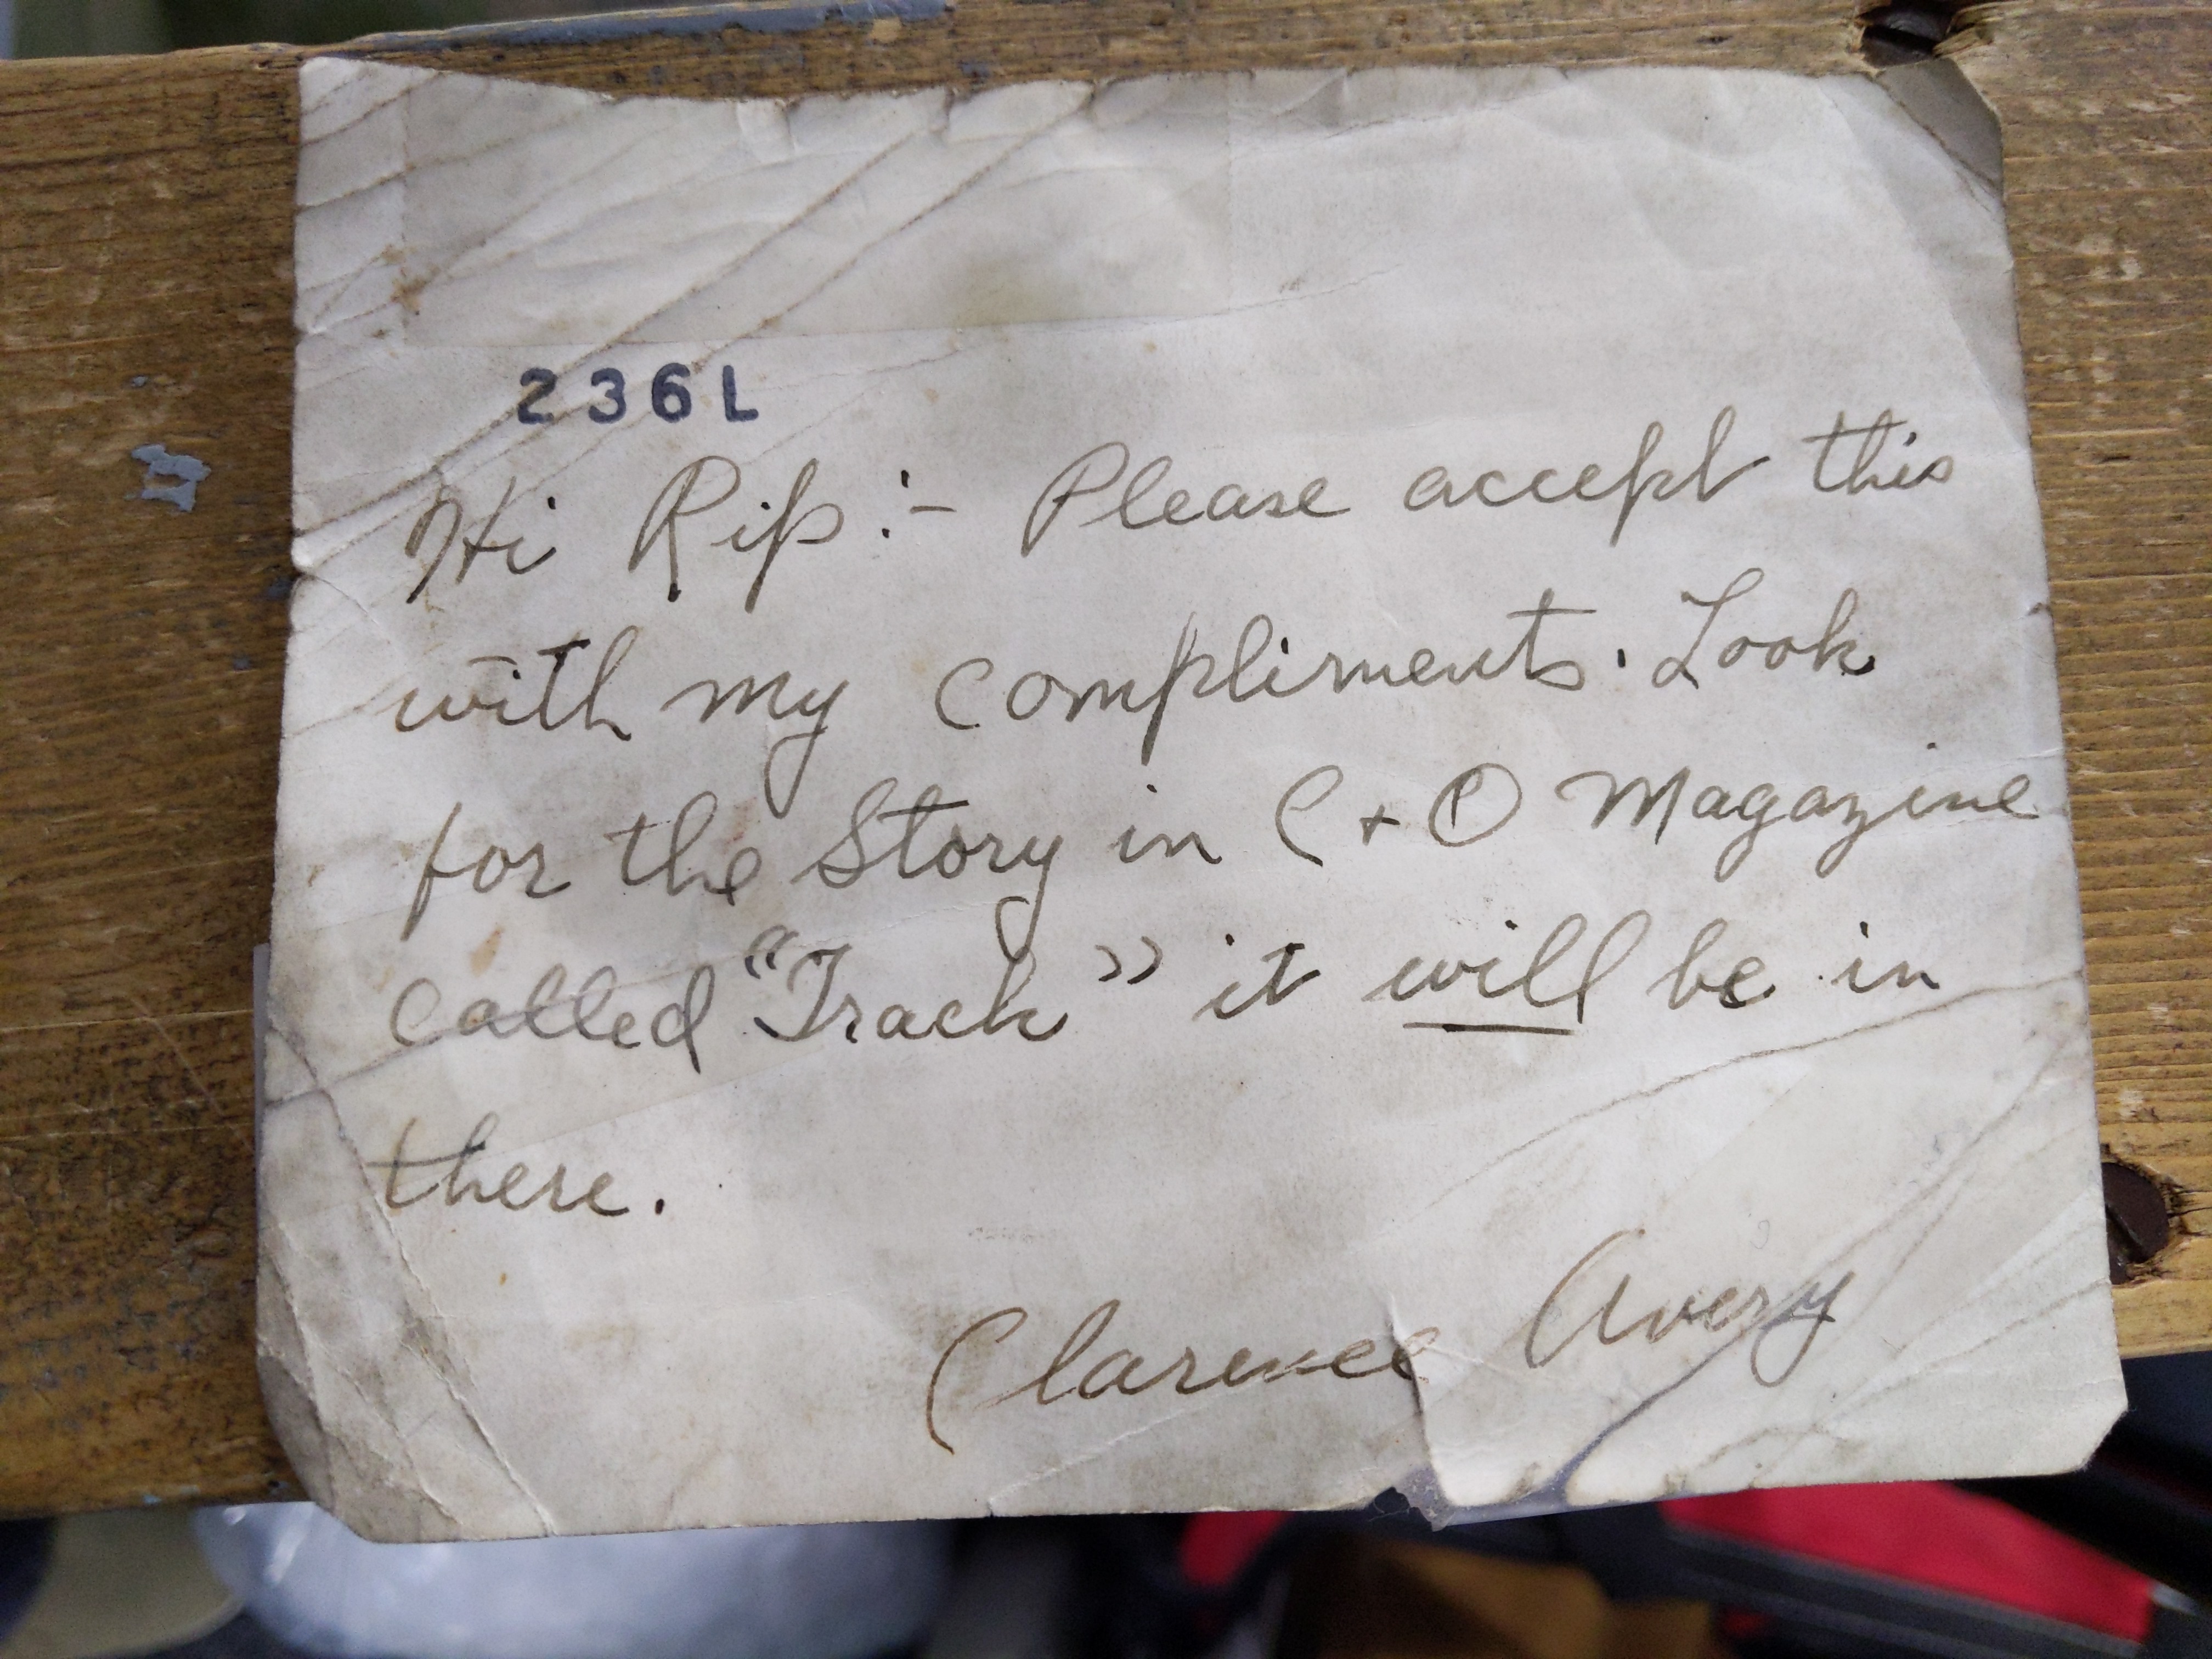 236L
Hi Rip:- Please accept this
with my compliments. Look
for the Story in C + O Magazine
called "Track" it will be in
there.
Clarence Avery